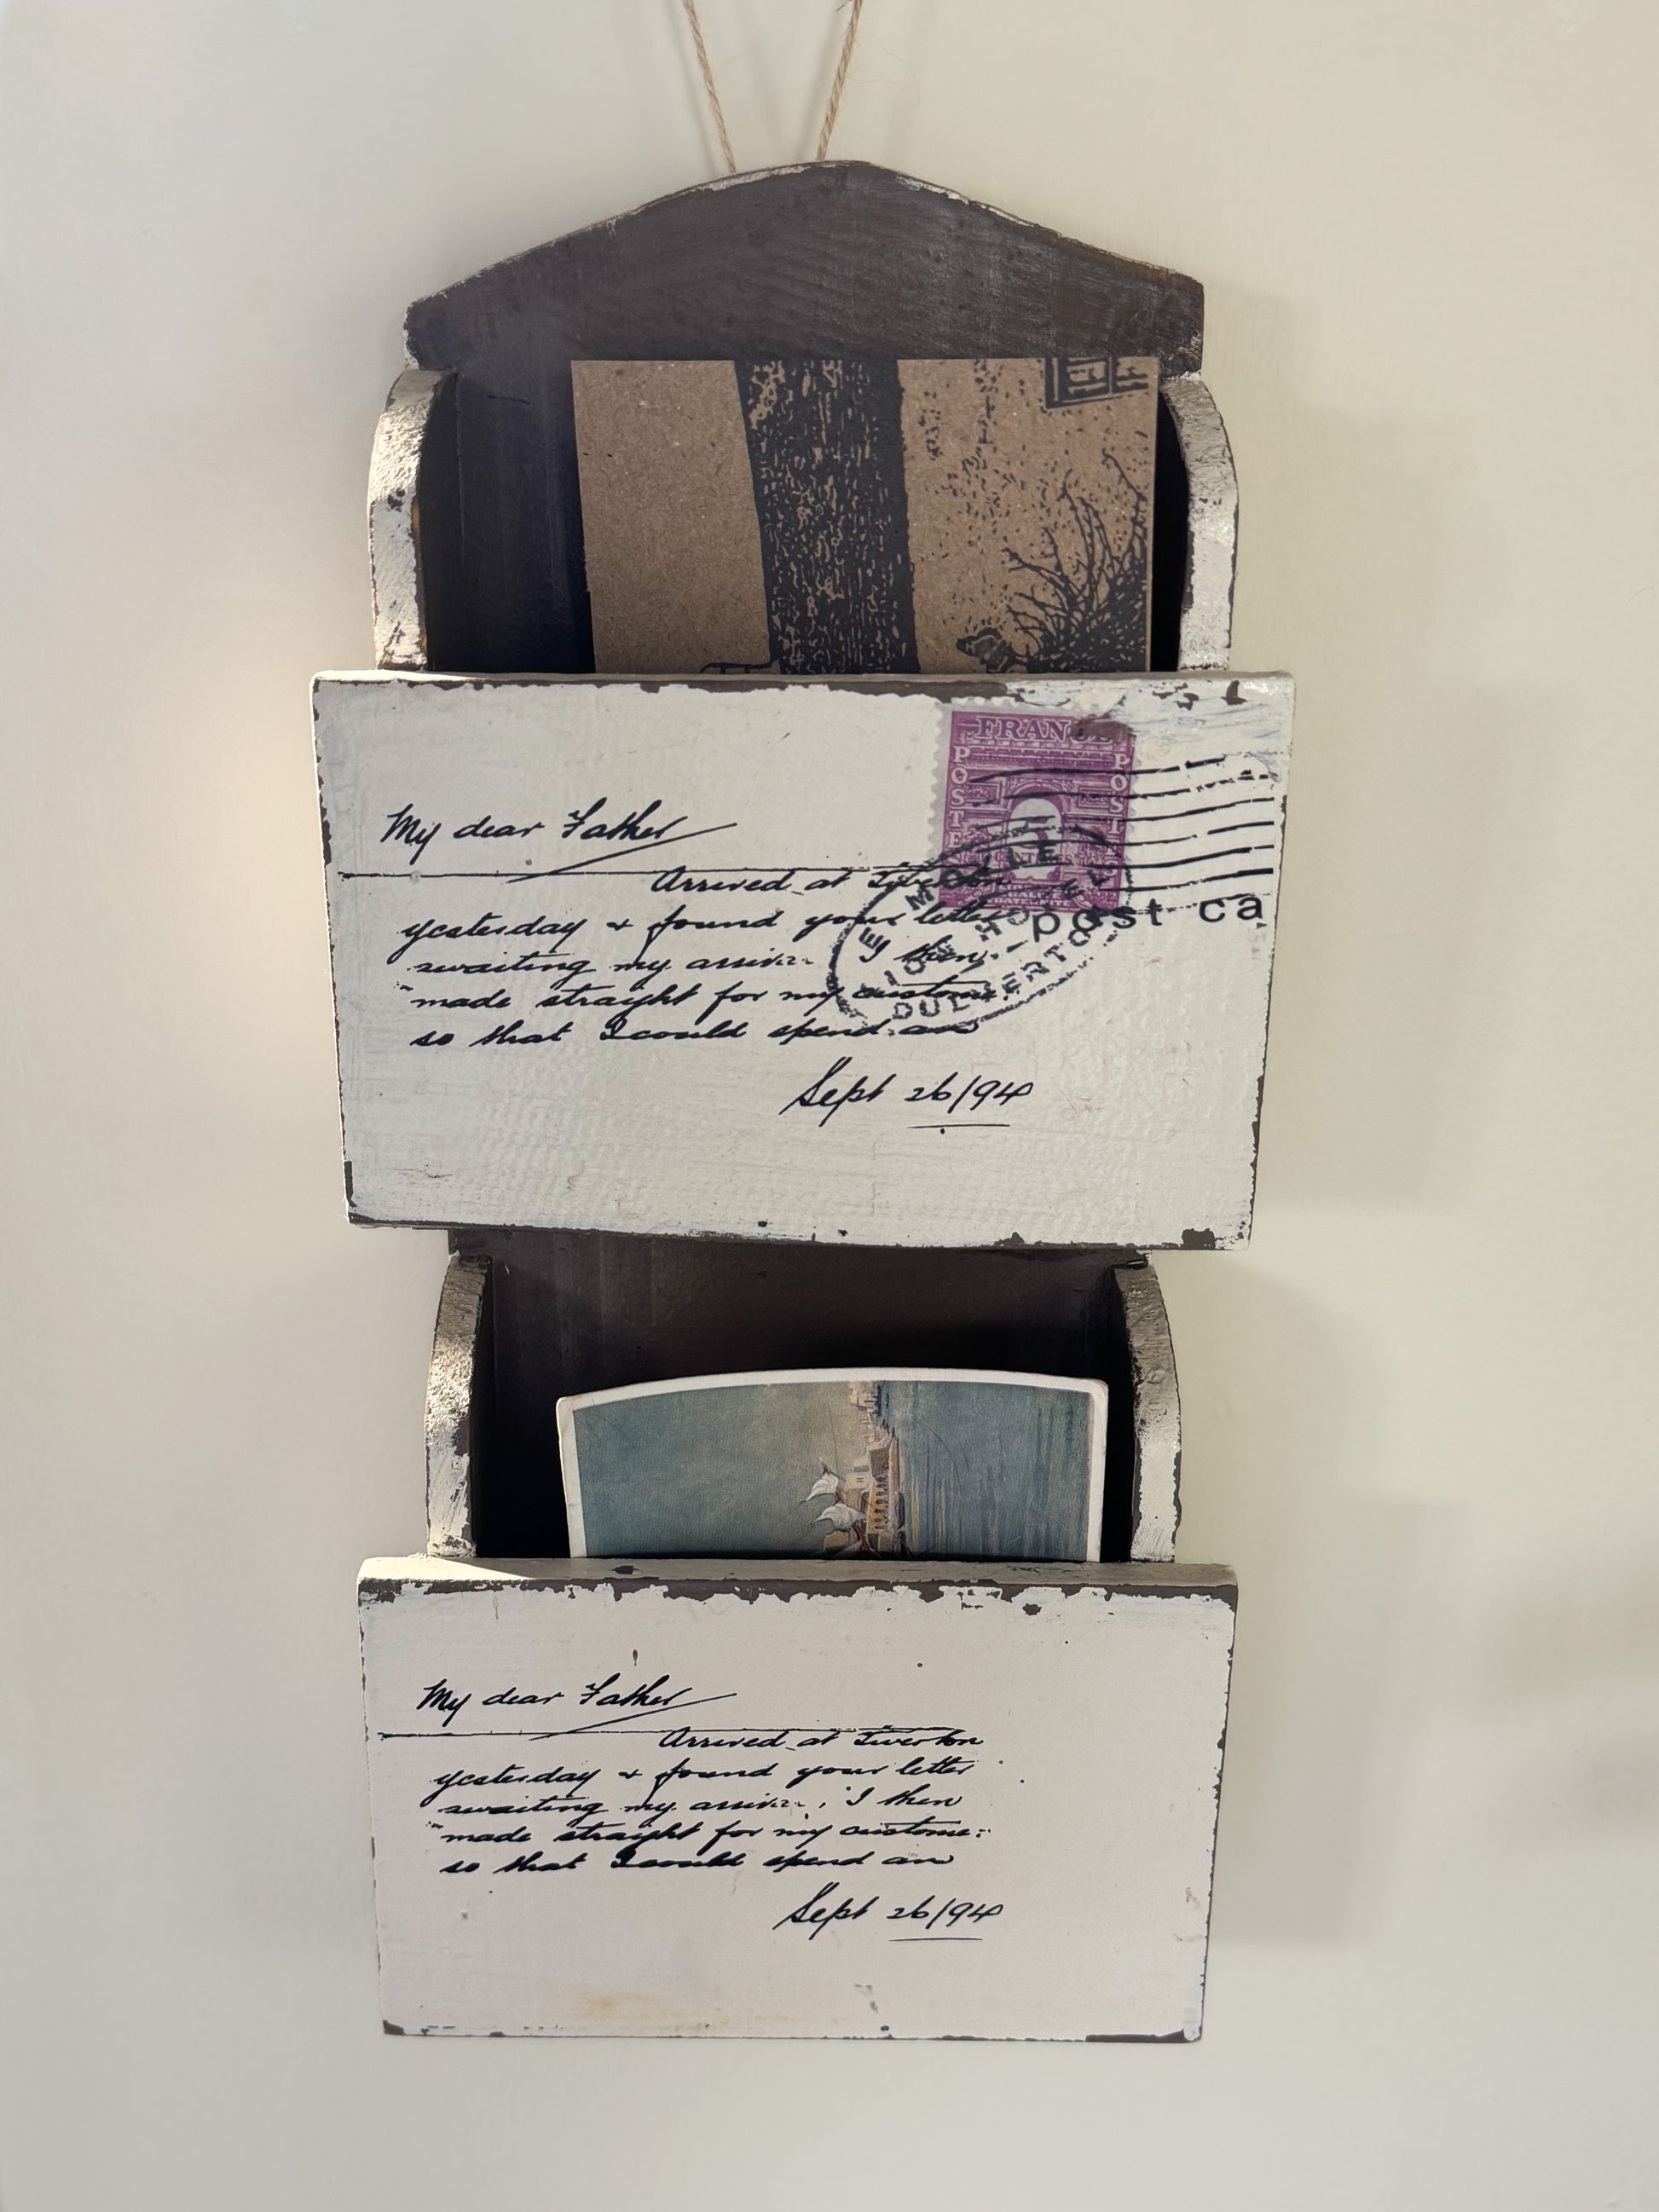 FRANCE
POSTES
POSTES
My dear Father
Arrived at Tiverton
yesterday & found your letter
awaiting my arriv
I then
made straight for my custome
so that I could spend an
post ca
DULVERTON
Sept 26/94
My dear Father
Arrived at Tiverton
yesterday & found your letter
awaiting my arriv I then
made straight for my custome
so that I could spend an
Sept 26/94